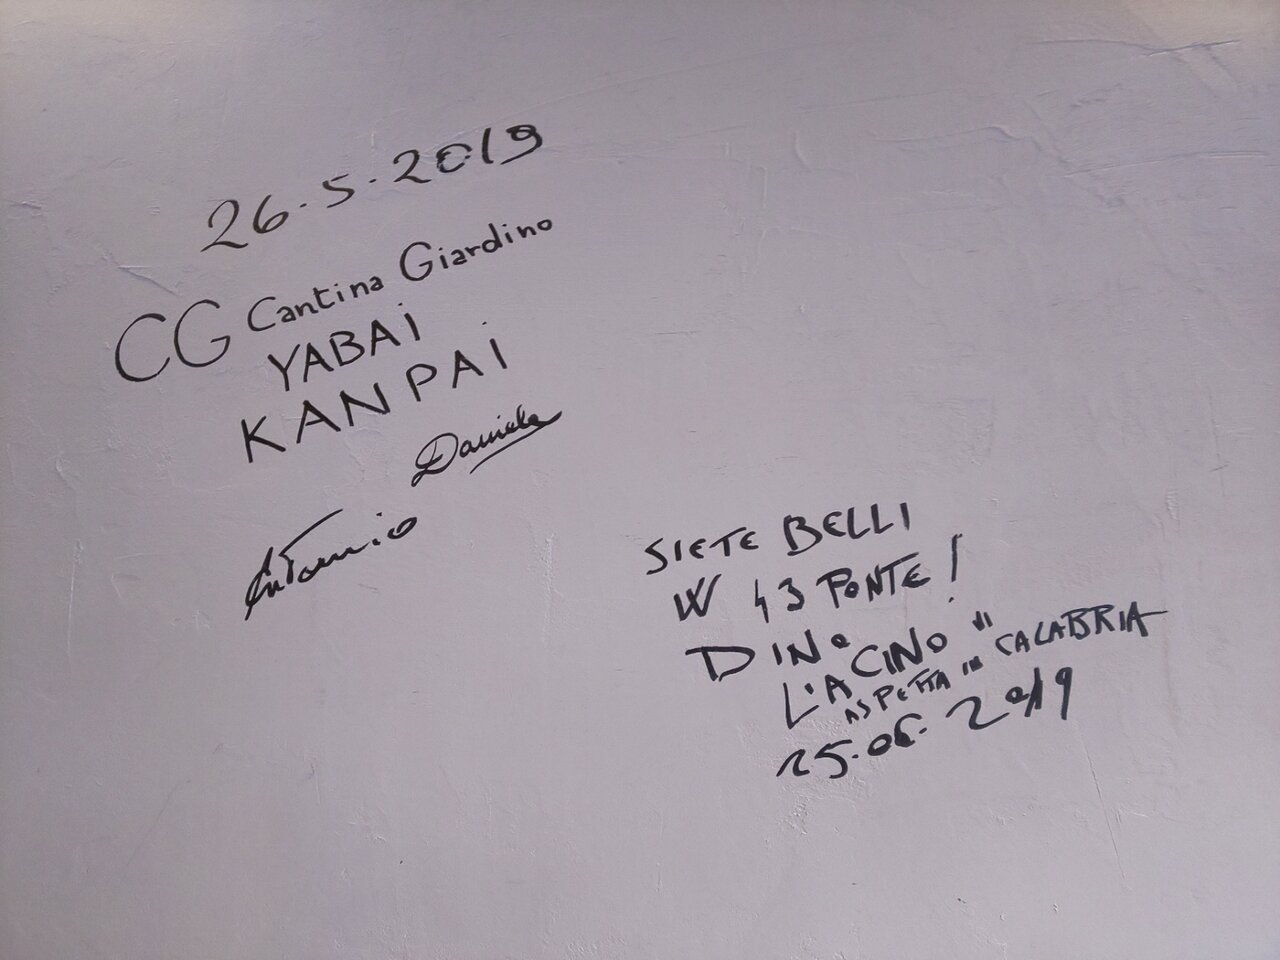 26.5.2019
CG Cantina Giardino
YABAI
KANPAI
Daniela
Antonio
SIETE BELLI
W 43 PONTE!
DINO
L'ACINO VI
ASPETTA IN CALABRIA
25.06.2019